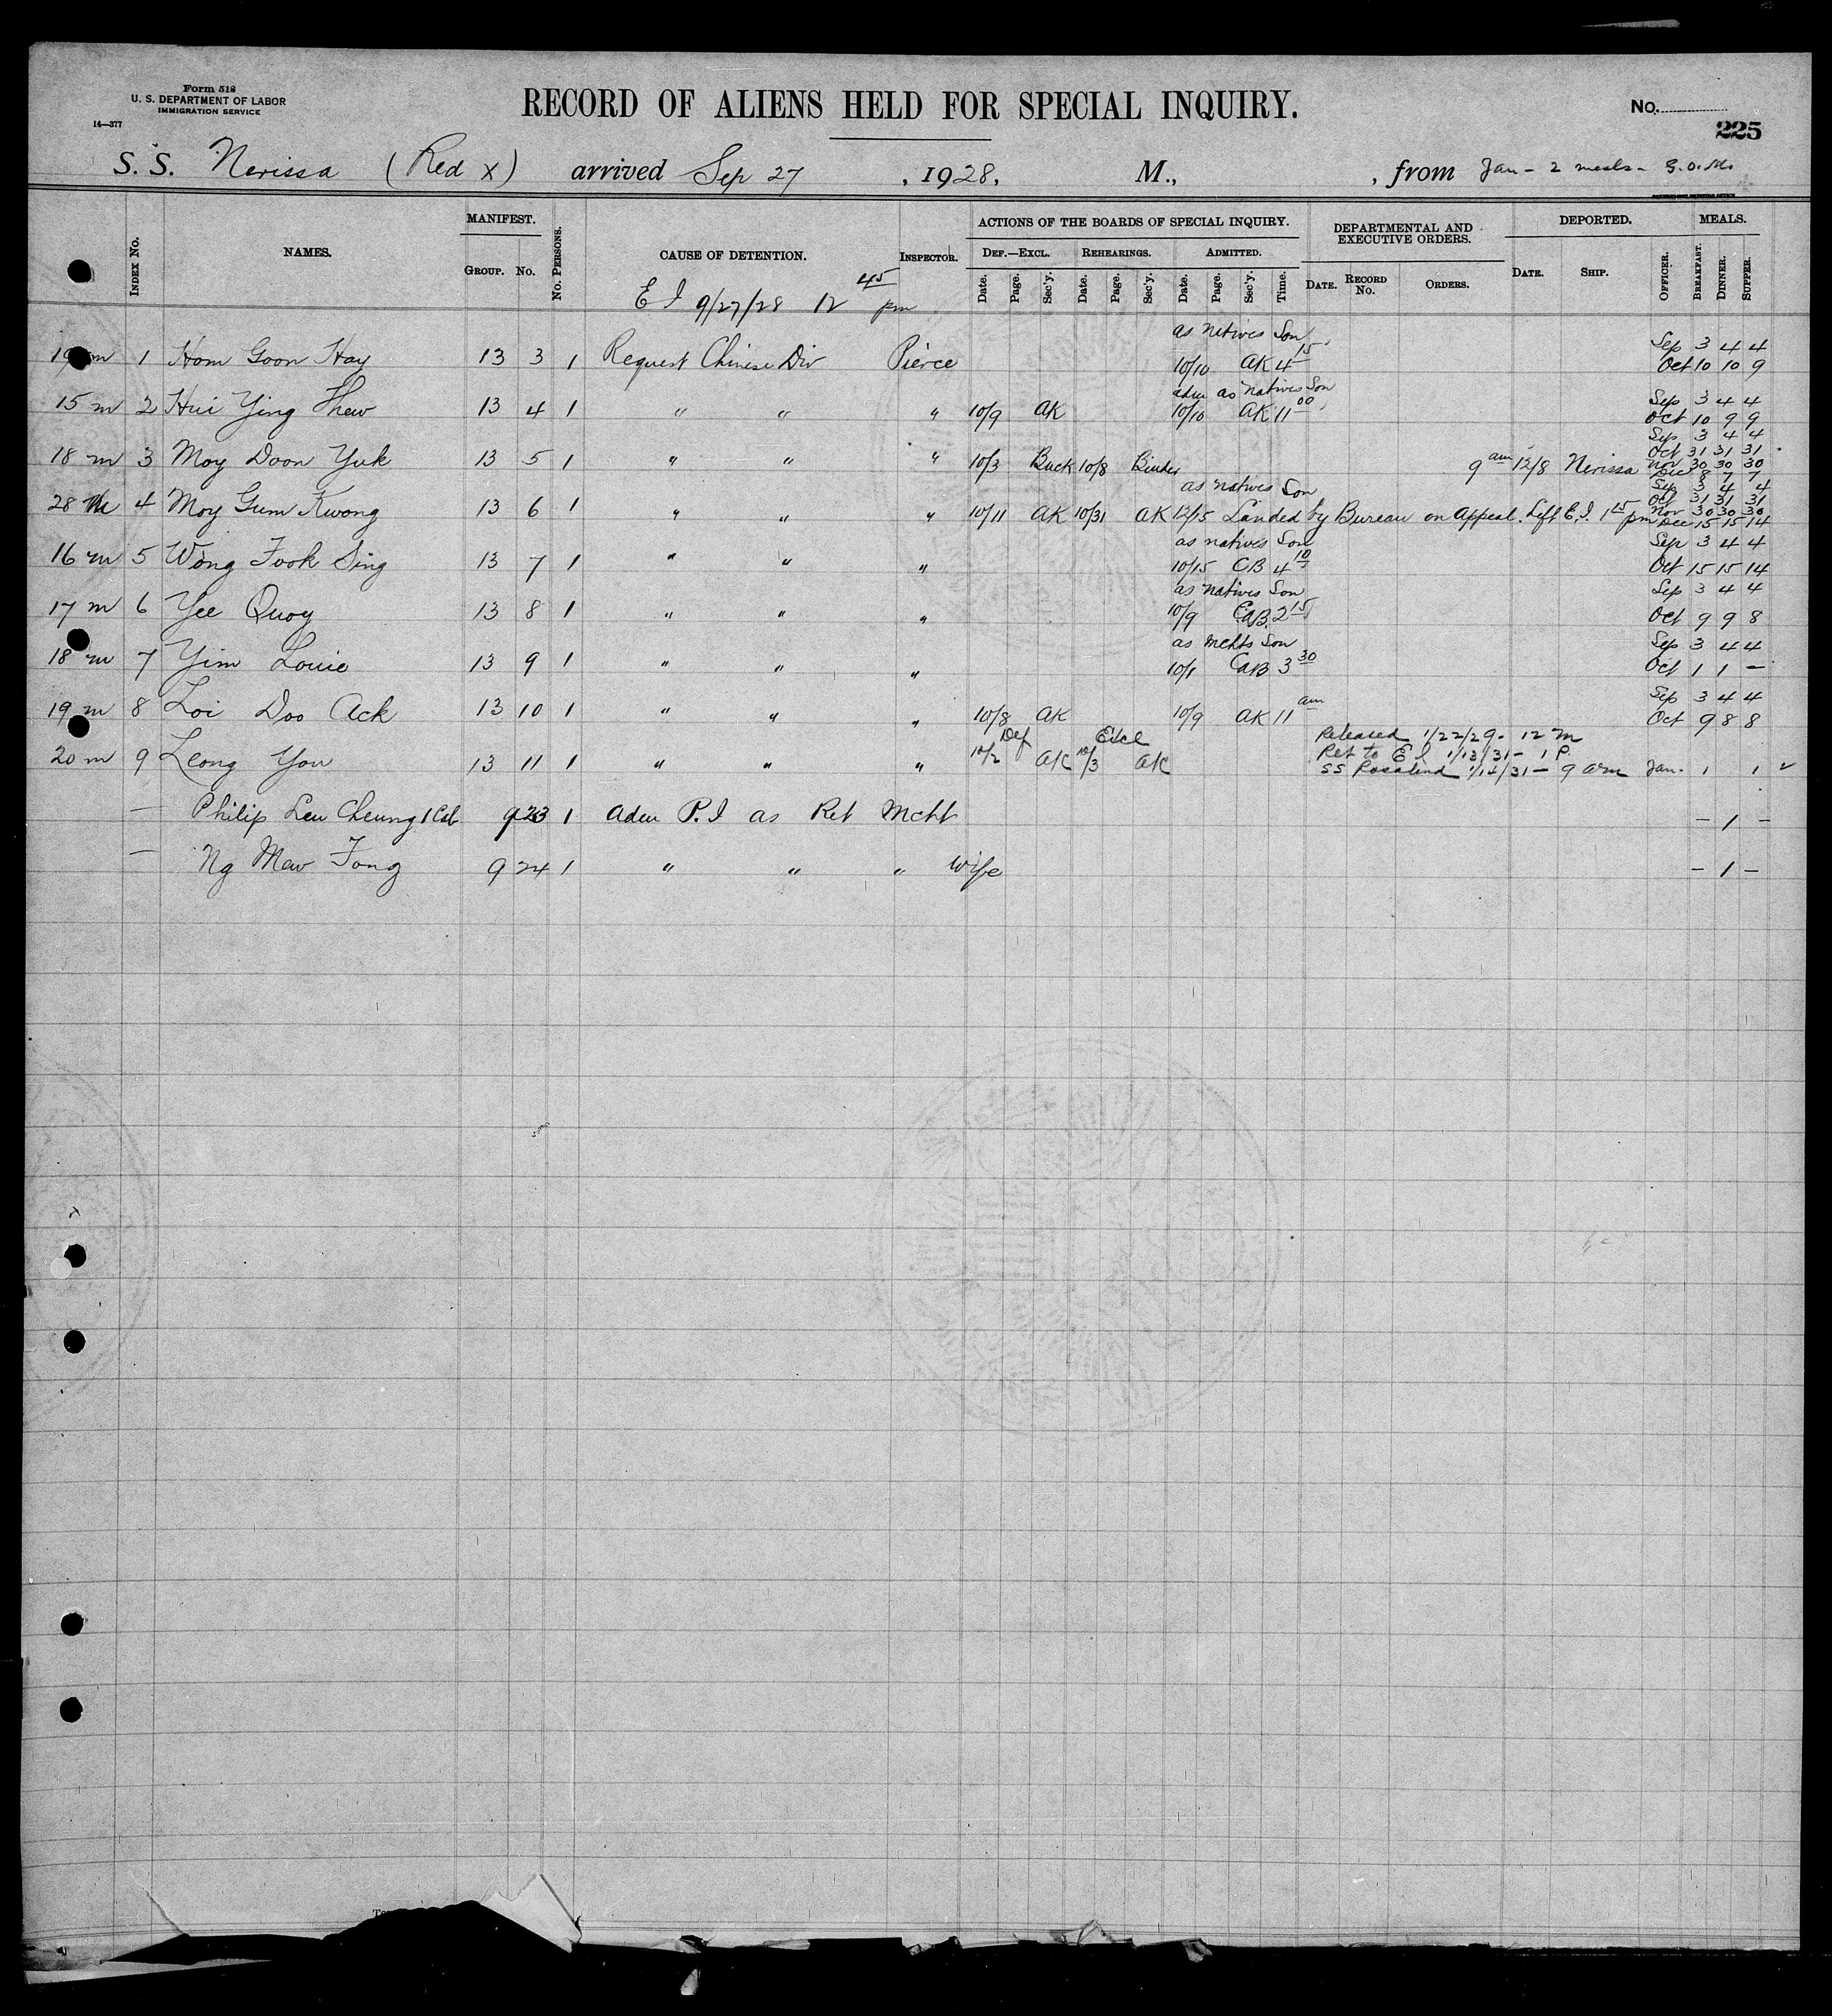 Form 518
U. S. DEPARTMENT OF LABOR
IMMIGRATION SERVICE
14—377
RECORD OF ALIENS HELD FOR SPECIAL INQUIRY.
No.
225
S. S. Nerissa (Red X) arrived Sep 27, 1928, M., , from Jan - 2 meals - G.O.M.
INDEX No. NAMES. MANIFEST. GROUP. No. No. PERSONS. CAUSE OF DETENTION. INSPECTOR. ACTIONS OF THE BOARDS OF SPECIAL INQUIRY. DEPARTMENTAL AND EXECUTIVE ORDERS. DEPORTED. MEALS.
DEF.—EXCL. REHEARINGS. ADMITTED.
Date. Page. Sec'y. Date. Page. Sec'y. Date. Page. Sec'y. Time. DATE. RECORD No. ORDERS. DATE. SHIP. OFFICER. BREAKFAST. DINNER. SUPPER.
E I 9/27/28 12 45 pm
as natives Son
Sep 3 4 4
19 m 1 Hom Goon Hay 13 3 1 Request Chinese Div Pierce 10/10 AK 4 15 Oct 10 10 9
adm as natives Son
Sep 3 4 4
15 m 2 Hui Ying Thew 13 4 1 " " " 10/9 AK 10/10 AK 11 00 Oct 10 9 9
Sep 3 4 4
Oct 31 31 31
18 m 3 Moy Doon Yuk 13 5 1 " " " 10/3 Buck 10/8 Binder 9 am 12/8 Nerissa Nov 30 30 30
Dec 8 7 7
as natives Son
Sep 3 4 4
Oct 31 31 31
28 m 4 Moy Gum Kwong 13 6 1 " " " 10/11 AK 10/31 AK 12/15 Landed by Bureau on Appeal. Left E.I. 1 15 pm Nov 30 30 30
Dec 15 15 14
as natives Son
Sep 3 4 4
16 m 5 Wong Fook Sing 13 7 1 " " " 10/15 CB 4 10 Oct 15 15 14
as natives Son
Sep 3 4 4
17 m 6 Yee Quoy 13 8 1 " " " 10/9 CaB. 2 15 Oct 9 9 8
as mchts Son
Sep 3 4 4
18 m 7 Yim Louie 13 9 1 " " " 10/1 CaB 3 30 Oct 1 1 -
Sep 3 4 4
19 m 8 Loi Doo Ack 13 10 1 " " " 10/8 AK 10/9 AK 11 am Oct 9 8 8
Def Excl
Released 1/22/29 - 12 m
Ret to E I 1/13/31 - 1 P
20 m 9 Leong You 13 11 1 " " " 10/2 AK 10/3 AK SS Rosalind 1/14/31 - 9 am Jan. 1 1 ✓
— Philip Leu Cheung 1 Cab 9 23 1 Adm P.I as Ret Mcht - 1 -
— Ng Mew Fong 9 24 1 " " " Wife - 1 -